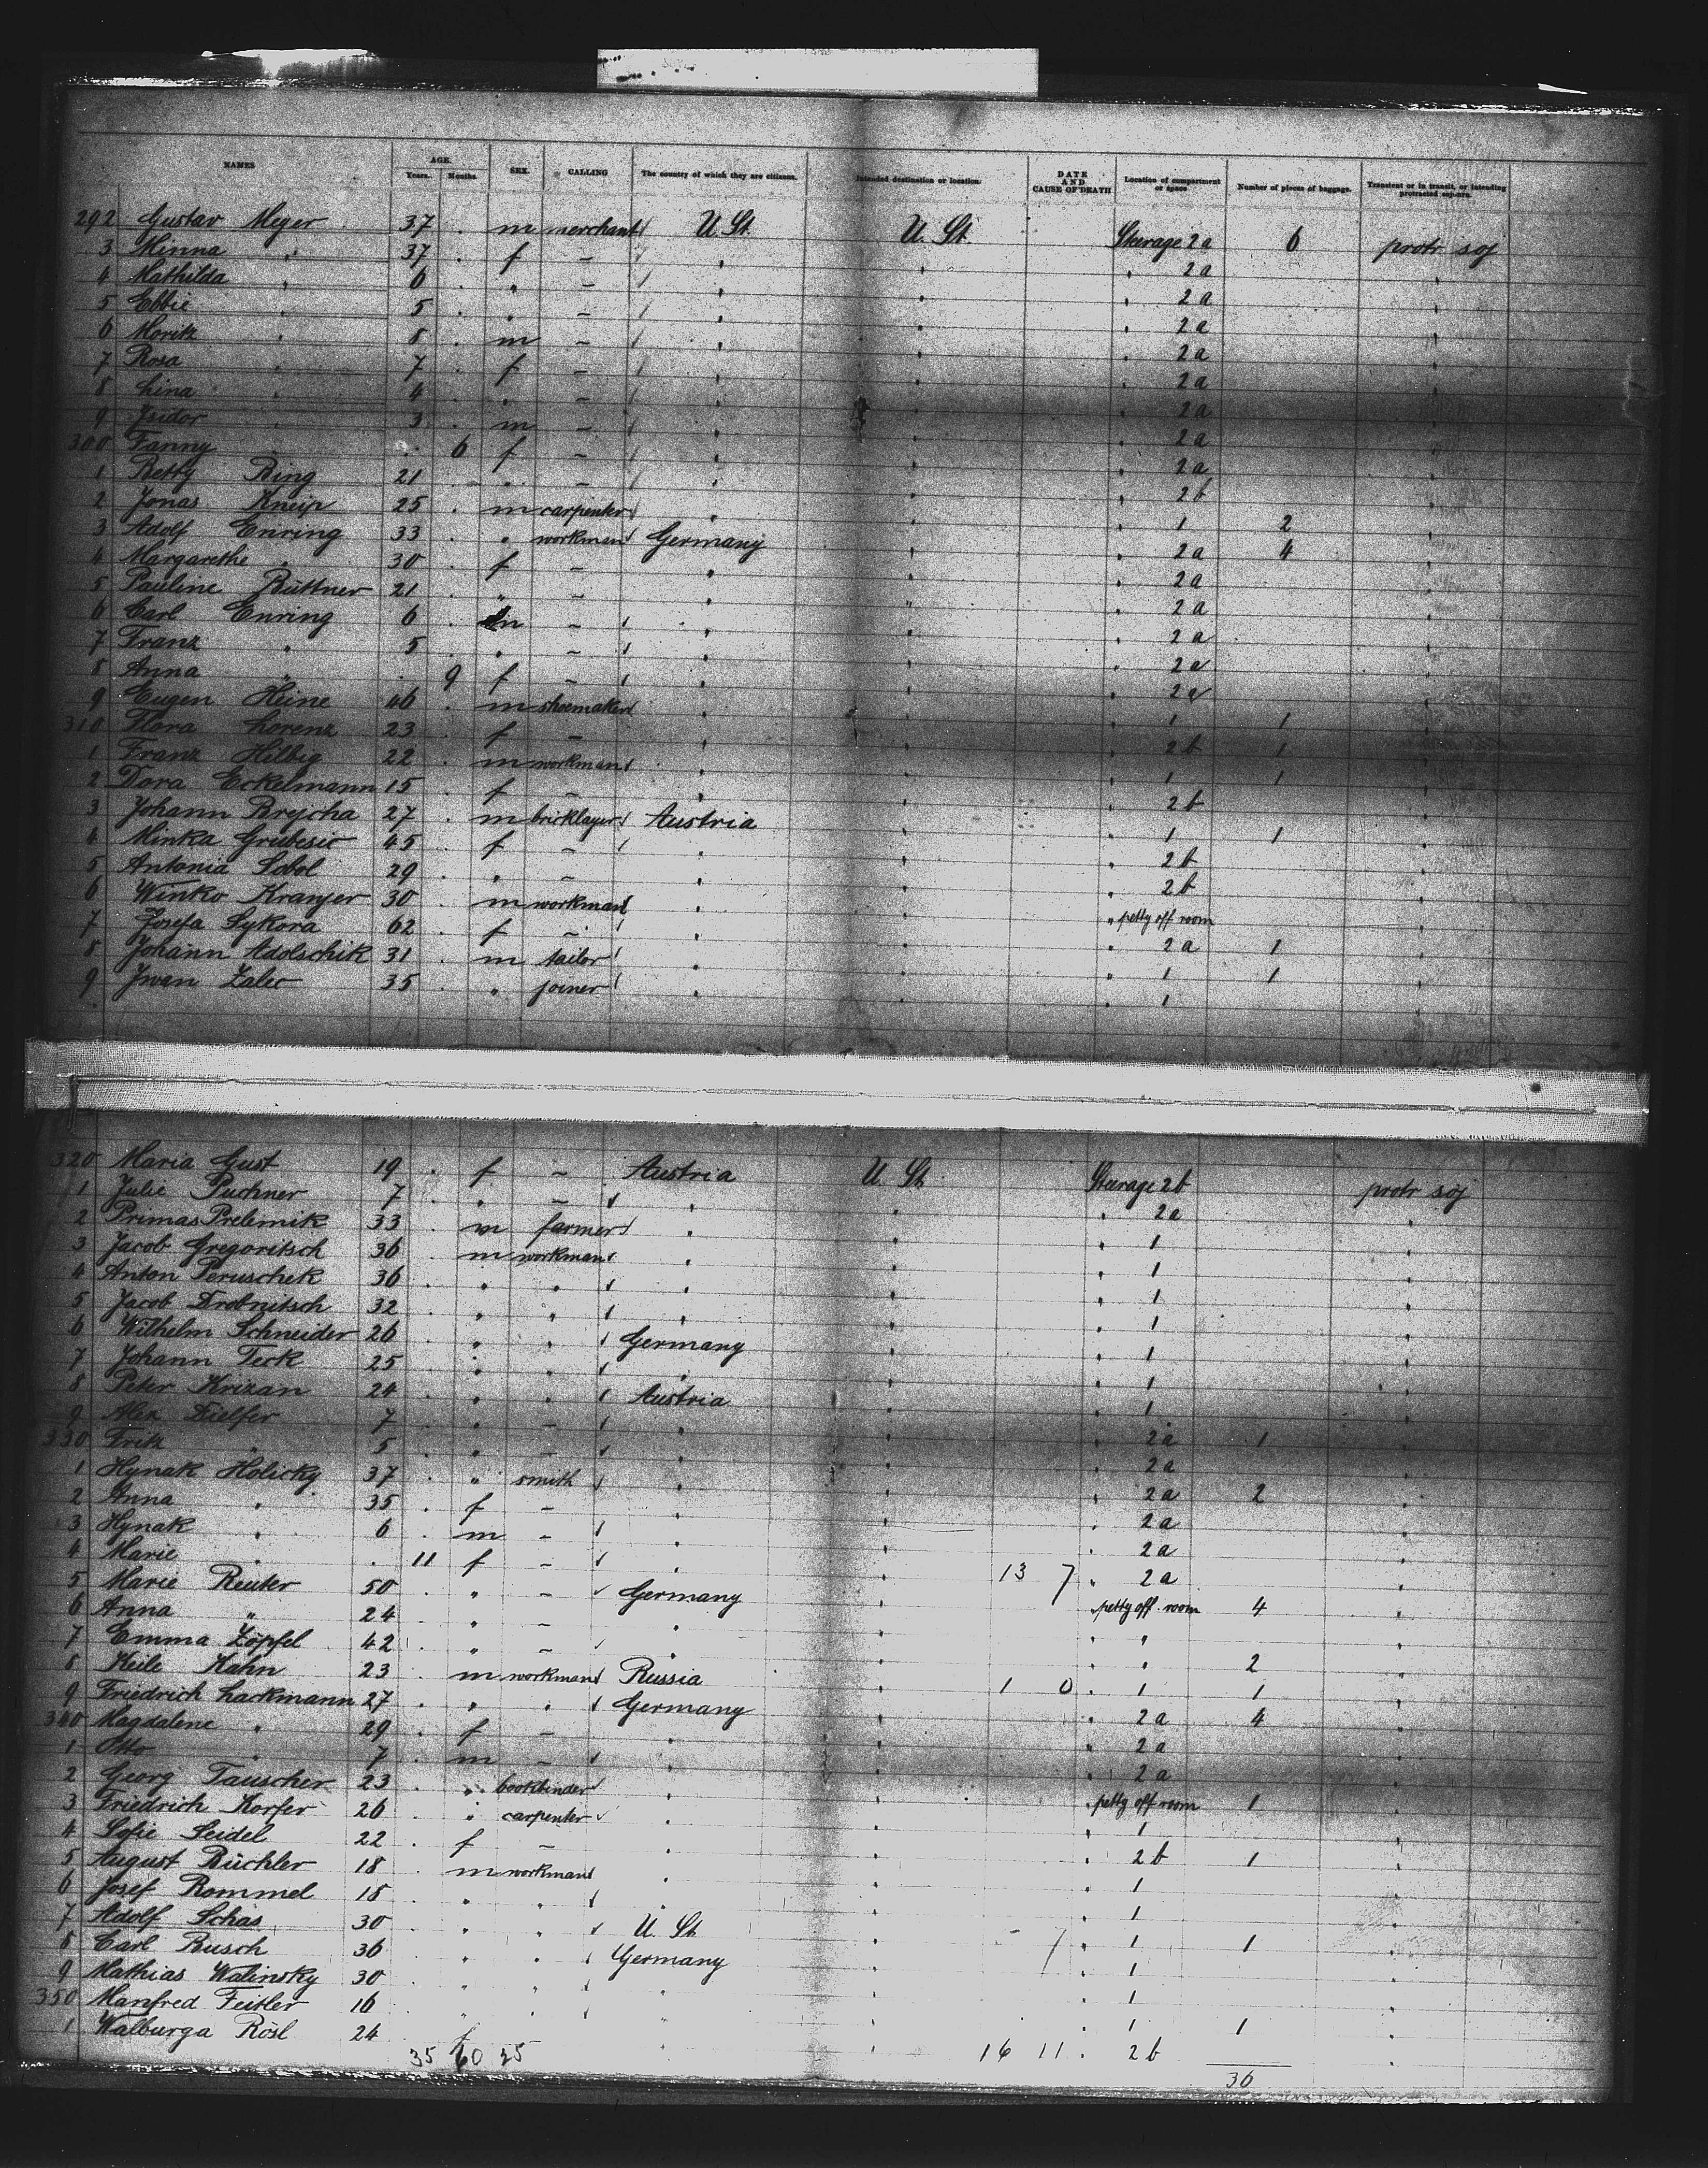 NAMES AGE. Years. Months SEX. CALLING The country of which they are citizens. Intended destination or location. DATE AND CAUSE OF DEATH Location of compartment or space Number of pieces of baggage. Transient or in transit, or intending protracted sojourn.
292 Gustav Meyer 37 . m merchant U. St. U. St. Steerage 2a 6 protr soj
3 Minna " 37 . f - " " " 2a "
4 Mathilda " 6 . " - " " " 2a "
5 " 5 . " - " " " 2a "
6 Moritz " 8 . m - " " " 2a "
7 Rosa " 7 . f - " " " 2a "
8 Lina " 4 . " - " " " 2a "
9 Isidor 3 . m - " " " 2a "
300 Fanny . 6 f - " " " 2a "
1 Betty Bing 21 . " - " " " 2b "
2 Jonas Kneip 25 . m carpenter " " " 1 2 "
3 Adolf Enring 33 . " workman Germany " " 2a 4 "
4 Margarethe " 30 . f - " " " 2a "
5 Pauline Büttner 21 . " - " " " 2a "
6 Carl Enring 6 . m - " " " 2a "
7 Franz " 5 . " - " " " 2a "
8 Anna " . 9 f - " " " 2a "
9 Eugen Heine 46 . m shoemaker " " " 1 1 "
310 Flora Lorenz 23 . f - " " " 2b 1 "
1 Franz Hilbig 22 . m workman " " " 1 1 "
2 Dora Eckelmann 15 . f - " " " 2b "
3 Johann Brejcha 27 . m bricklayer Austria " " 1 1 "
4 Minka Grubesic 45 . f - " " " 2b "
5 Antonia Sobol 29 . " - " " " 2b "
6 Winko Kranjer 30 . m workman " " " petty off room "
7 Josefa Sykora 62 . f - " " " 2a 1 "
8 Johann Adolschik 31 . m tailor " " " 1 1 "
9 Jwan Zalec 35 . " joiner " " " 1 "
320 Maria Gust 19 . f - Austria U. St. Steerage 2b protr soj
1 Julie Puchner 7 . " - " " " 2a "
2 Primas Prelimik 33 . m farmer " " " 1 "
3 Jacob Gregoritsch 36 . m workman " " " 1 "
4 Anton Peruschek 36 . " " " " " 1 "
5 Jacob Drobnitsch 32 . " " " " " 1 "
6 Wilhelm Schneider 26 . " " Germany " " 1 "
7 Johann Teck 25 . " " " " " 1 "
8 Peter Krizan 24 . " " Austria " " 1 "
9 Alex Dielfer 7 . " - " " " 2a 1 "
330 Fritz " 5 . " - " " " 2a "
1 Hynak Holicky 37 . " smith " " " 2a 2 "
2 Anna " 35 . f - " " " 2a "
3 Hynak " 6 . m - " " " 2a "
4 Marie " . 11 f - " " 13 7 " 2a "
5 Marie Reuter 50 . " - Germany " " petty off. room 4 "
6 Anna " 24 . " - " " " " "
7 Emma Zöpfel 42 . " - " " " " 2 "
8 Heile Kahn 23 . m workman Russia " 1 0 " 1 1 "
9 Friedrich Lackmann 27 . " " Germany " " 2a 4 "
340 Magdalene " 29 . f - " " " 2a "
1 Otto " 7 . m - " " " 2a "
2 Georg Tauscher 23 . " bookbinder " " " petty off room 1 "
3 Friedrich Korfer 26 . " carpenter " " " 1 "
4 Sofie Seidel 22 . f - " " " 2b 1 "
5 August Büchler 18 . m workman " " " 1 "
6 Josef Rommel 18 . " " " " " 1 "
7 Adolf Schas 30 . " " U. St. " - 7 " 1 1 "
8 Carl Busch 36 . " " Germany " " 1 "
9 Mathias Walinsky 30 . " " " " " 1 "
350 Manfred Feitler 16 . " " " " " 1 1 "
1 Walburga Rösl 24 . f " " 16 11 " 2b "
35 60 25 36